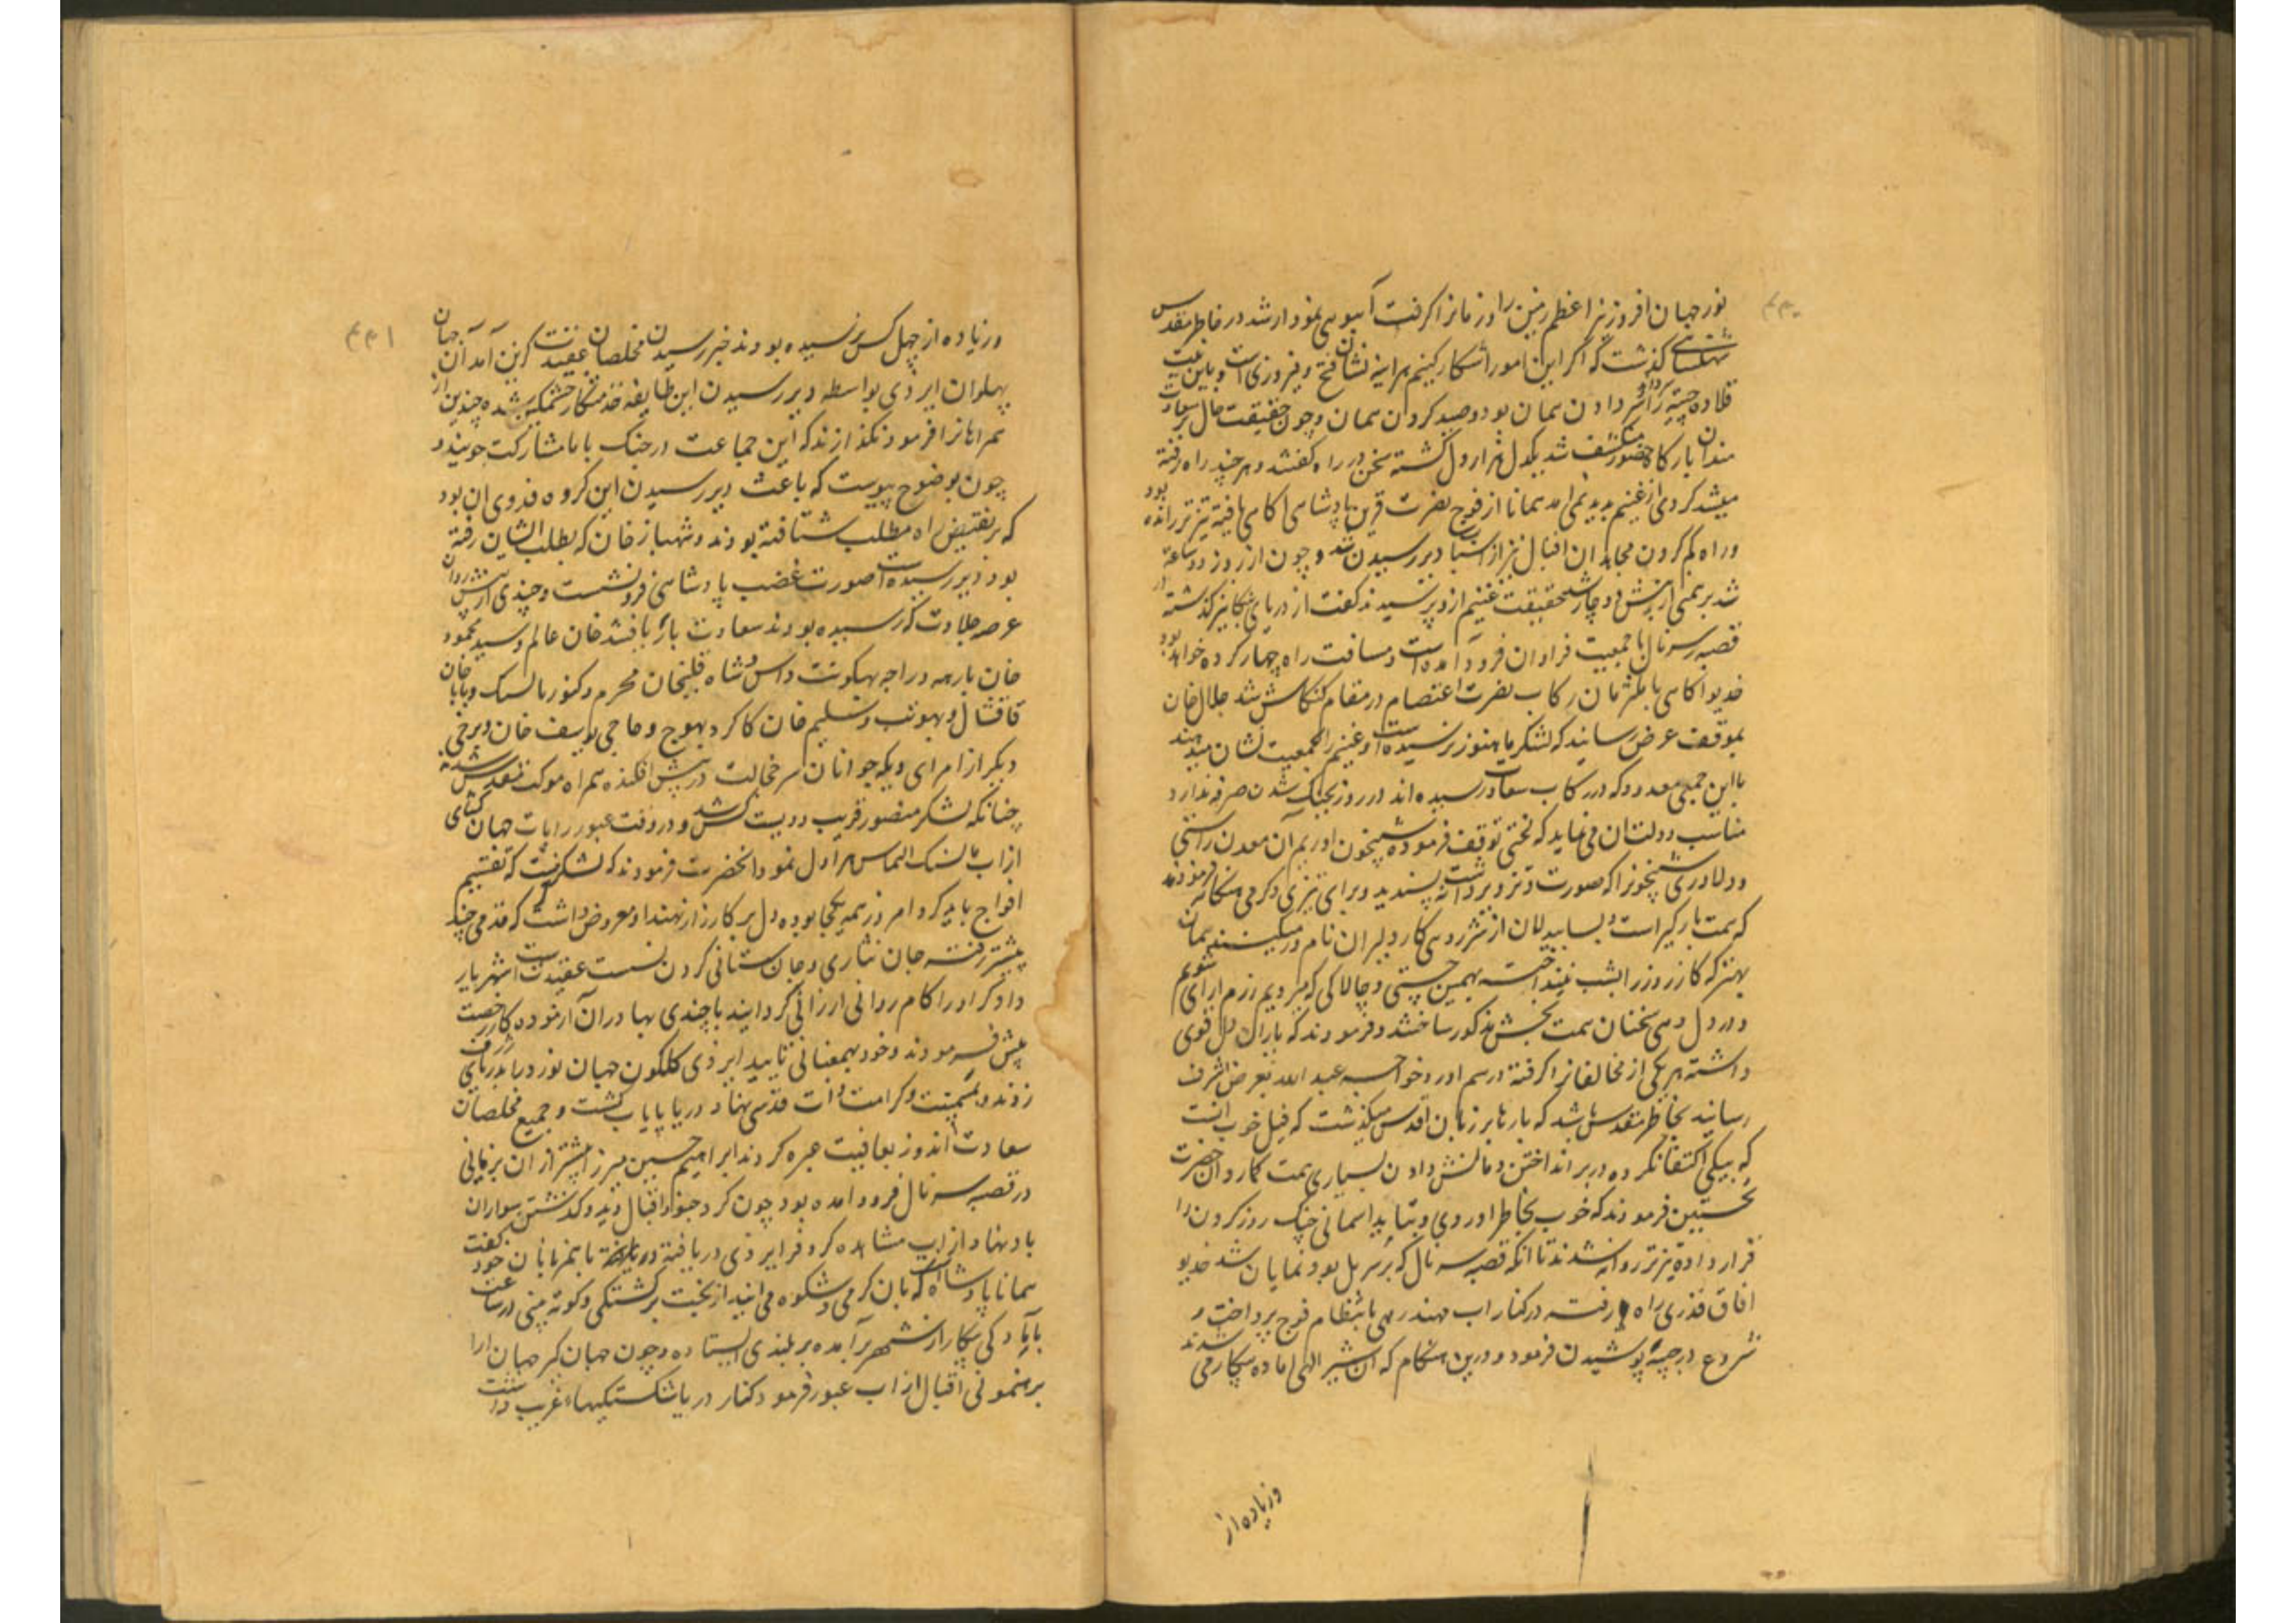 ۴۴۰
نور جهان افروز نیر اعظم زمین را و زمانرا گرفت آهویی نمودار شد در خاطر مقدس
شهنشاهی گذشت که اگر این آهو را شکار کنیم هر آینه نشان فتح و فیروزی است و باین نیت
قلاده چیته را سر دادن همان بود و صید کردن همان و چون حقیقت حال بر سعادت
مندان بارگاه حضور منکشف شد یکدل هزار دل گشته سخن در راه گفتند و هر چند راه رفته
میشد گردی از غنیم پدید نمی آمد همانا از فوج نصرت قرین پادشاهی آگاهی یافته تیزتر رانده بود
و راه گم کردن مجاهدان اقبال نیز از اسباب دیر رسیدن شد و چون از روز دو ساعت
شد برهمنی از پیش دوچار شد حقیقت غنیم ازو پرسیدند گفت از دریای شکانیر گذشته در
قصبه سرنال با جمعیت فراوان فرود آمده است و مسافت راه چهار کرده خواهد بود
خدیو آگاهی با ملتزمان رکاب نصرت اعتصام در مقام کنگاش شد جلال خان
بموقف عرض رسانید که لشکر ما هنوز نرسیده است و غنیم را جمعیت نشان میدهند
با این جمعی معدود که در رکاب سعادت رسیده اند در روز بجنگ شدن صرفه ندارد
مناسب دولت آن می نماید که لختی توقف فرموده شبیخون آوریم آن معدن راستی
و دلاوری شبیخونرا که صورت تزویر داشت نه پسندید و برای تیزی و گرمی هنگامه فرمودند
که همت بارگیر است و بسا بیدلان از شر روی کار دلیران نام درمیکنند همان
بهتر که کار روز را بشب نینداخته بهمین چستی و چالاکی که میرویم رزم آرای شویم
و در دل دهی سخنان همت بخش مذکور ساختند و فرمودند که یاران دل قوی
داشته هر یکی از مخالفانرا گرفته درهم آورد خواجه عبد الله بعرض اشرف
رسانید بخاطر مقدس باشد که بارها بر زبان اقدس میگذشت که فیل خوب آنست
که بیکی اکتفا نکرده در بر انداختن و مالش دادن بسیاری همت گمارد آن حضرت
تحسین فرمودند که خوب بخاطر آوردی و بتایید آسمانی جنگ روز کردن را
قرار داده تیزتر روانه شدند تا آنکه قصبه سرنال که بر سر پل بود نمایان شد خدیو
آفاق قدری راه رفته در کنار آب مهندری بانتظام فوج پرداخت و
شروع در جیبه پوشیدن فرمود و درین هنگام که آن شیر الهی آماده پیکار می شدند
وزیاده از
۴۴۱
وزیاده از چهل کس نرسیده بودند خبر رسیدن مخلصان عقیدت گزین آمد آن جهان
پهلوان ایزدی بواسطه دیر رسیدن این طایفه خدمتگار خشمگین شده چندین از
همراهانرا فرمود نگذارند که این جماعت در جنگ با ما مشارکت جویند و
چون بوضوح پیوست که باعث دیر رسیدن این گروه فدوی آن بود
که بر نقیض راه مطلب شتافته بودند و شهباز خان که بطلب ایشان رفته
بود دیر رسیده است صورت غضب پادشاهی فرو نشست و چندی از پیش روان
عرصه جلادت که رسیده بودند سعادت بار یافتند خان عالم و سید محمود
خان بارهه و راجه بهگونت داس و شاه قلیخان محرم و کنور مانسنگ و بابا خان
قاقشال و بهونت و سلیم خان کاکر و بهوج و حاجی یوسف خان و برخی
دیگر از امرای و یکه جوانان سر خجالت در پیش افکنده همراه موکب مقدس شدند
چنانکه لشکر منصور قریب دویست کس شد و در وقت عبور رایات جهان گشای
از آب مانسنگ التماس هراول نمود آنحضرت فرمودند که لشکر نیست که تقسیم
افواج باید کرد امروز همه یکجا بوده دل بر کارزار نهند او معروض داشت که قدمی چند
پیشتر رفته جان نثاری و جان ستانی کردن نسبت عقیدت است شهریار
دادگر او را کام روائی ارزانی گردانیده با چندی بهادران آزموده کار رخصت
پیش فرمودند و خود بهمعنانی تایید ایزدی گلگون جهان نورد را بدریای ژرف
زدند و بمیمنت و کرامت ذات قدسی نهاد دریا پایاب گشت و جمیع مخلصان
سعادت اندوز بعافیت عبره کردند ابراهیم حسین میرزا پیشتر از آن بزمانی
در قصبه سرنال فرود آمده بود چون گرد جنود اقبال دید و گذشتن سواران
باد نهاد از آب مشاهده کرد فر ایزدی دریافته با همزبانان خود گفت
همانا پادشاه است که بان گرمی و شکوه می آیند از بخت برگشتگی و کوته بینی در ساعت
بآمادگی پیکار از شهر برآمده بر بلندی ایستاده و چون جهان گیر جهان آرا
برهنمونی اقبال از آب عبور فرمود کنار دریا شکستگیهاء غریب داشت